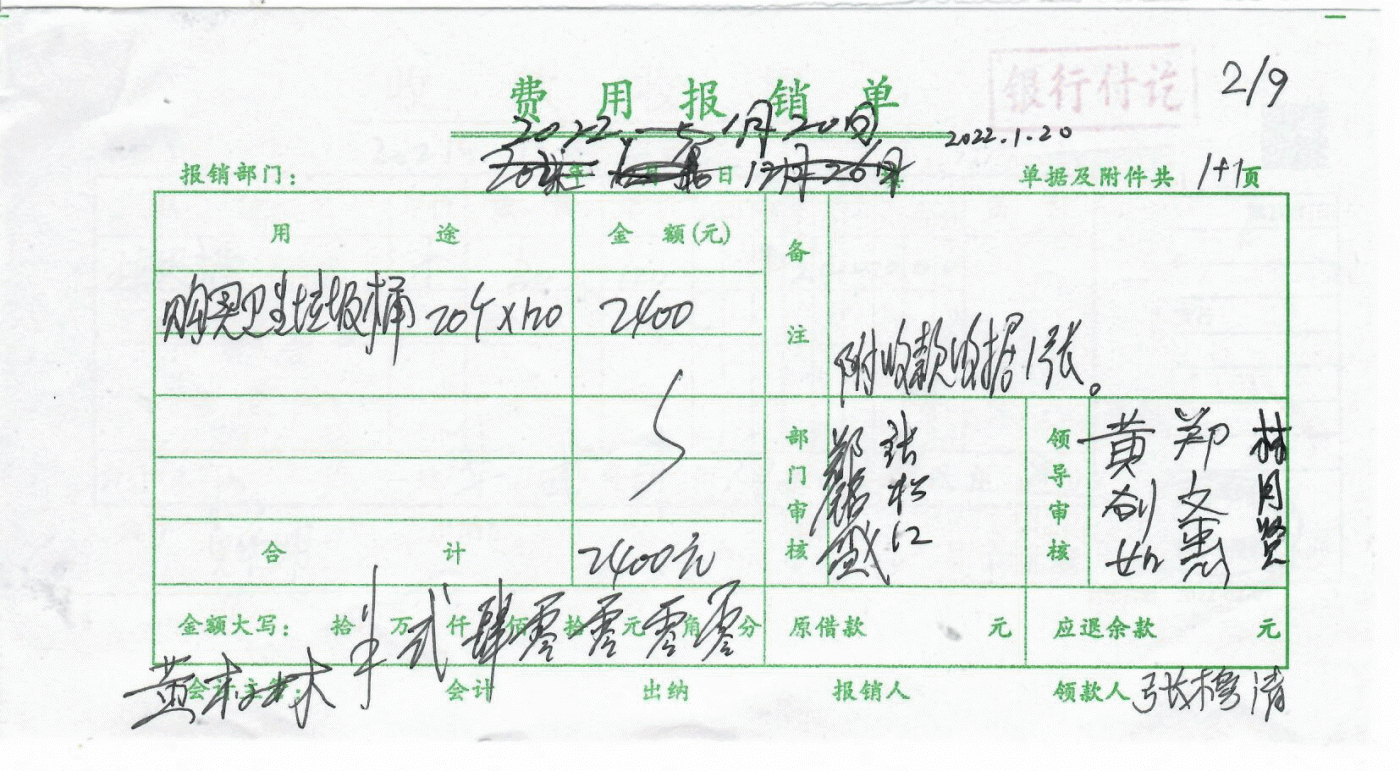 银行付讫
2/9
费用报销单
2022年1月20日
2022.1.20
报销部门：
年 月 日 12月26日
单据及附件共 1+1 页
用途 金额(元) 备注
购买卫生垃圾桶 20个×120 2400
附收款收据1张。
部门审核 张松江
领导审核 黄剑如 郑文惠 林月贤
合计 2400元
金额大写： 拾 万 贰 仟 肆 佰 零 拾 零 元 零 角 零 分 原借款 元 应退余款 元
会计主管： 黄林林 会计 出纳 报销人 领款人 张清